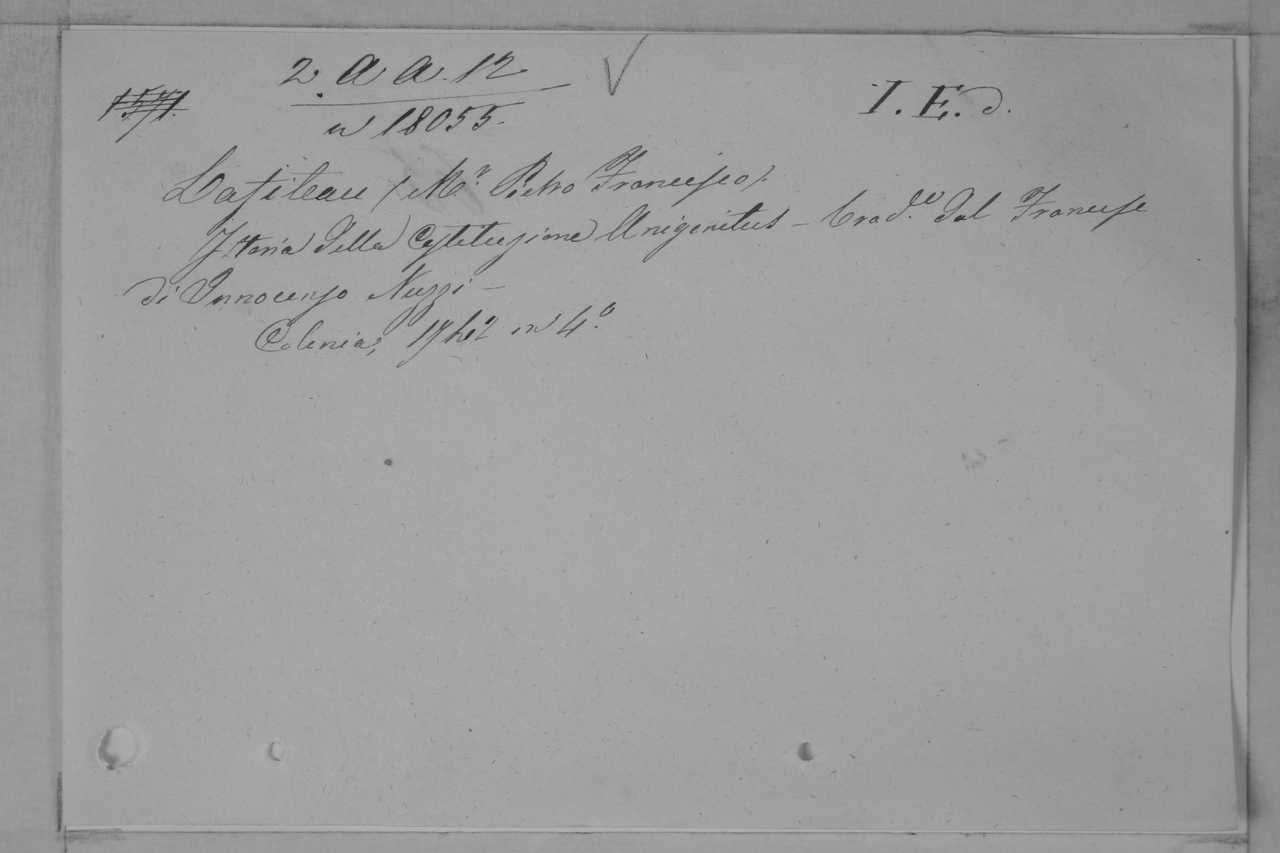 2. a a. 12
1571.
I. E. d.
n 18055.
Lafiteau (Mr. Pietro Francesco).
Istoria della Costituzione Unigenitus - trad.e dal Francese
di Innocenzo Nuzzi -
Colonia, 1742 in 4.o